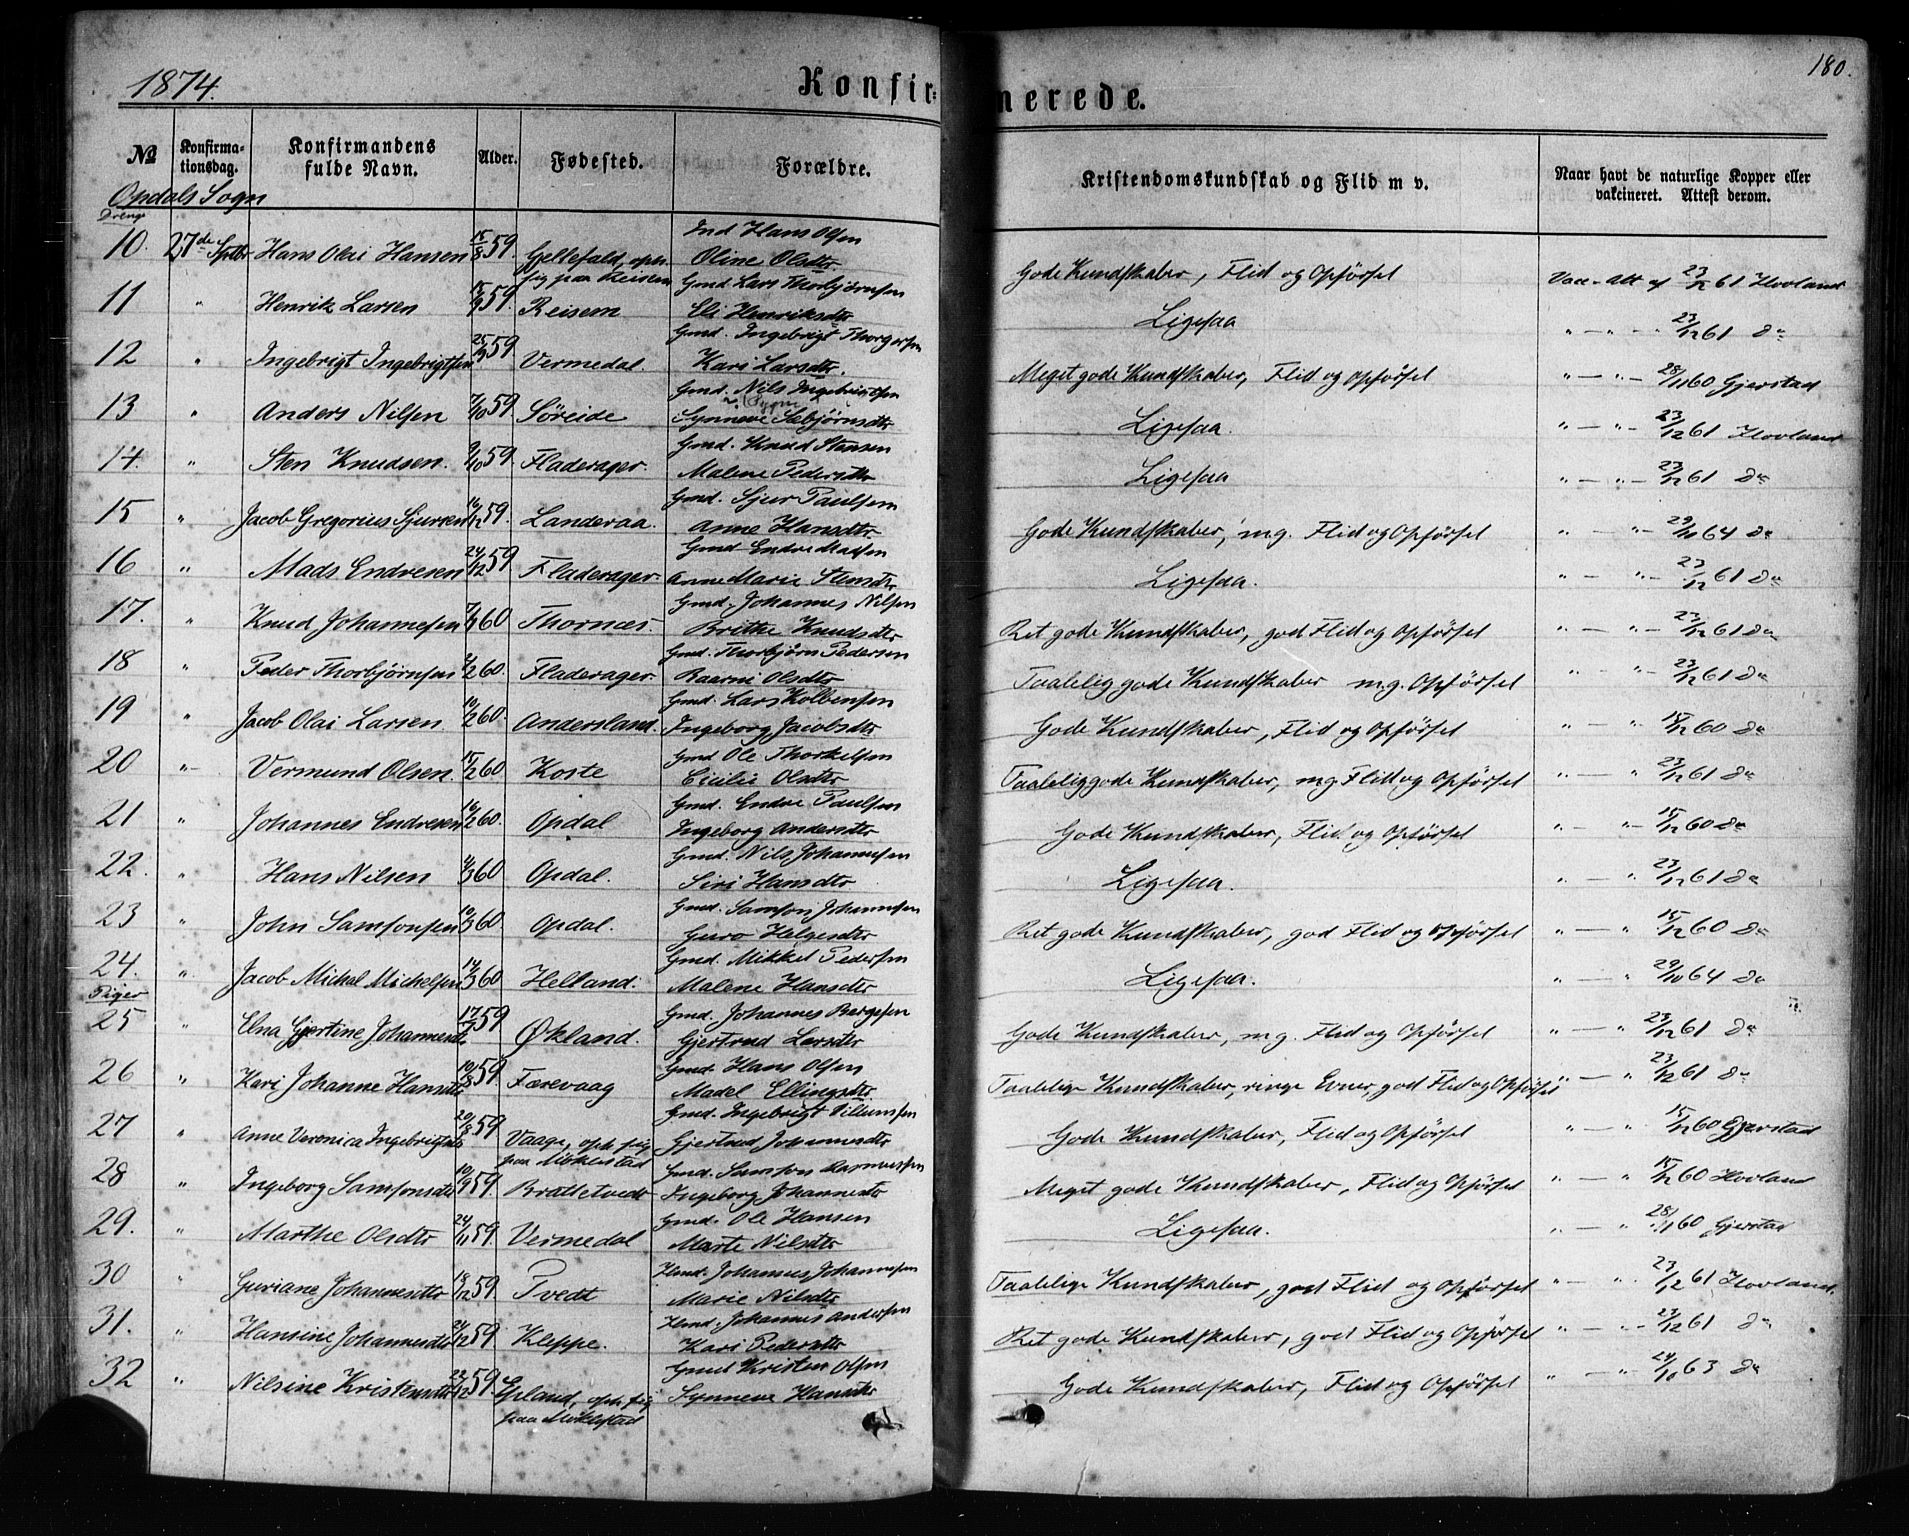 1874.
Konfir-
merede.
180.
№ Konfirmationsdag. Konfirmandens fulde Navn. Alder. Fødested. Forældre. Kristendomskundskab og Flid m v. Naar havt de naturlige Kopper eller vakcineret. Attest derom.
Opdals Sogn
Drenge
10. 27de Septbr Hans Olai Hansen 15/8 59 Gjellefald, oph. sig paa Reisem Ind Hans Olsen Oline Olsdtr Gode Kundskaber, Flid og Opførsel Vacc. Att af 23/12 61 Hovland
11 " Henrik Larsen 59. Reisem Gmd Lars Thorbjørnsen Eli Henriksdtr Ligesaa " — " — 23/12 61 do
12 " Ingebrigt Ingebrigtsen 25/9 59 Vermedal. Gmd. Ingebrigt Thorgersen Kari Larsdtr. Meget gode Kundskaber, Flid og Opførsel " — " — 28/11 60 Gjerstad
13 " Anders Nilsen 7/10 59 Søreide Gmd. Nils Ingebrigtsen Synneve Sæbjørnsdtr Ligesaa. " — " — 23/12 61 Hovland
14. " Sten Knudsen. 9/10 59. Fladerager. Gmd. Knud Stensen Malene Pedersdtr Ligesaa " — " — 23/12 61 do
15 " Jacob Gregorius Sjursen 16/12 59. Landeraa. Gmd. Sjur Paulsen Anne Hansdtr Gode Kundskaber, mg. Flid og Opførsel " — " — 29/10 64 do
16 " Mads Endresen 24/12 59 Fladerager Gmd Endre Madsen Anne Marie Stensdtr Ligesaa. " — " — 23/12 61 do
17. " Knud Johannesen 60 Thornæs. Gmd. Johannes Nilsen Brithe Knudsdtr Ret gode Kundskaber, god Flid og Opførsel " — " — 23/12 61 do
18 " Peder Thorbjørnsen 2/2 60. Fladerager Gmd. Thorbjørn Pedersen Olsdtr Taalelig gode Kundskaber mg. Opførsel " — " — 23/12 61 do
19 " Jacob Olai Larsen. 10/2 60. Andersland. Gmd. Lars Kolbensen Ingeborg Jacobsdtr Gode Kundskaber, Flid og Opførsel " — " 15/12 60 do
20 " Vermund Olsen. 15/2 60 Koste Gmd Ole Thorkelsen Cicilie Olsdtr Taalelig gode Kundskaber, mg Flid og Opførsel " — " 23/12 61 do
21 " Johannes Endresen 16/2 60. Opdal Gmd. Endre Paulsen Ingeborg Andersdtr Gode Kundskaber, Flid og Opførsel " — " — 15/12 60 do
22. " Hans Nilsen 4/3 60 Opdal. Gmd. Nils Johannesen Siri Hansdtr Ligesaa. " — " 23/12 61 do
23 " John Samsonsen 10/3 60 Opdal. Gmd. Samson Johannesen Guro Helgesdtr Ret gode Kundskaber, god Flid og Opførsel " — " 15/12 60 do
24. " Jacob Michal Michelsen 14/3 60 Helland. Gmd. Mikkel Pedersen Malene Hansdtr Ligesaa. " — " 29/10 64 do
Piger
25 " Elna Gjertine Johannesdtr 59 Økland. Gmd. Johannes Børgesen Gjertrud Larsdtr Gode Kundskaber, mg. Flid og Opførsel " — " 23/12 61 do
26 " Kari Johanne Hansdtr 10/8 59. Færevaag Gmd. Hans Olsen Madel Ellingsdtr. Taalelige Kundskaber, ringe Evner, god Flid og Opførsel " — " 23/12 61 do
27 " Anne Veronica Ingebrigtsdtr 20/8 59 Vaage, oph. sig paa Møklestad Gmd. Ingebrigt Villumsen Gjertrud Johannesdtr Gode Kundskaber, Flid og Opførsel " — " 15/12 60 Gjerstad
28 " Ingeborg Samsonsdtr 10/9 59. Brattetvedt Gmd. Samson Rasmussen Ingeborg Johannesdtr Meget gode Kundskaber, Flid og Opførsel " — " 15/12 60 Hovland
29. " Marthe Olsdtr 24/11 59. Vermedal Gmd. Ole Hansen Marte Nilsdtr Ligesaa. " — " 28/11 60 Gjerstad
30 " Guriane Johannesdtr 18/12 59. Tvedt Hmd. Johannes Johannesen Marie Nilsdtr Taalelige Kundskaber, god Flid og Opførsel " — " 23/12 61 Hovland.
31. " Hansine Johannesdtr 21/12 59. Kleppe. Hmd. Johannes Andersen Kari Pedersdtr Ret gode Kundskaber, god Flid og Opførsel " — " — 23/12 61 do
32 " Nilsine Kristensdtr 22/12 59. Epland, oph. sig paa Møklestad Gmd Kristen Olsen Synneve Hansdtr Gode Kundskaber, Flid og Opførsel " " 24/10 63 do